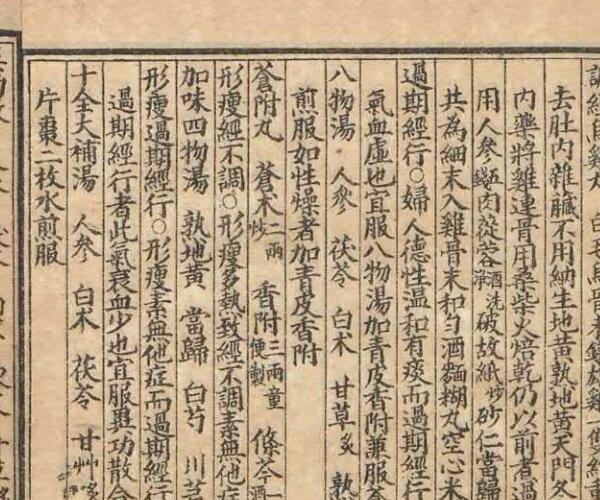 調經烏雞丸 白毛烏骨
去肚內雜臟不用納生地黃熟地黃天門冬
內藥將雞連骨用桑柴火焙乾仍以前者
用人參錢五肉蓯蓉酒洗淨破故紙炒砂仁當歸
共為細末入雞骨末和勻酒麵糊丸空心米
過期經行○婦人德性溫和有痰而過期經行
氣血虛也宜服八物湯加青皮香附兼服蒼
八物湯 人參 茯苓 白朮 甘草炙 熟
煎服如性燥者加青皮香附
蒼附丸 蒼朮二兩炒 香附三兩童便製 條芩一酒
形瘦經不調○形瘦多熱致經不調素無他症
加味四物湯 熟地黃 當歸 白芍 川芎
形瘦過期經行○形瘦素無他症而過期經行
過期經行者此氣衰血少也宜服異功散合
十全大補湯 人參 白朮 茯苓 甘艸炙
片棗二枚水煎服